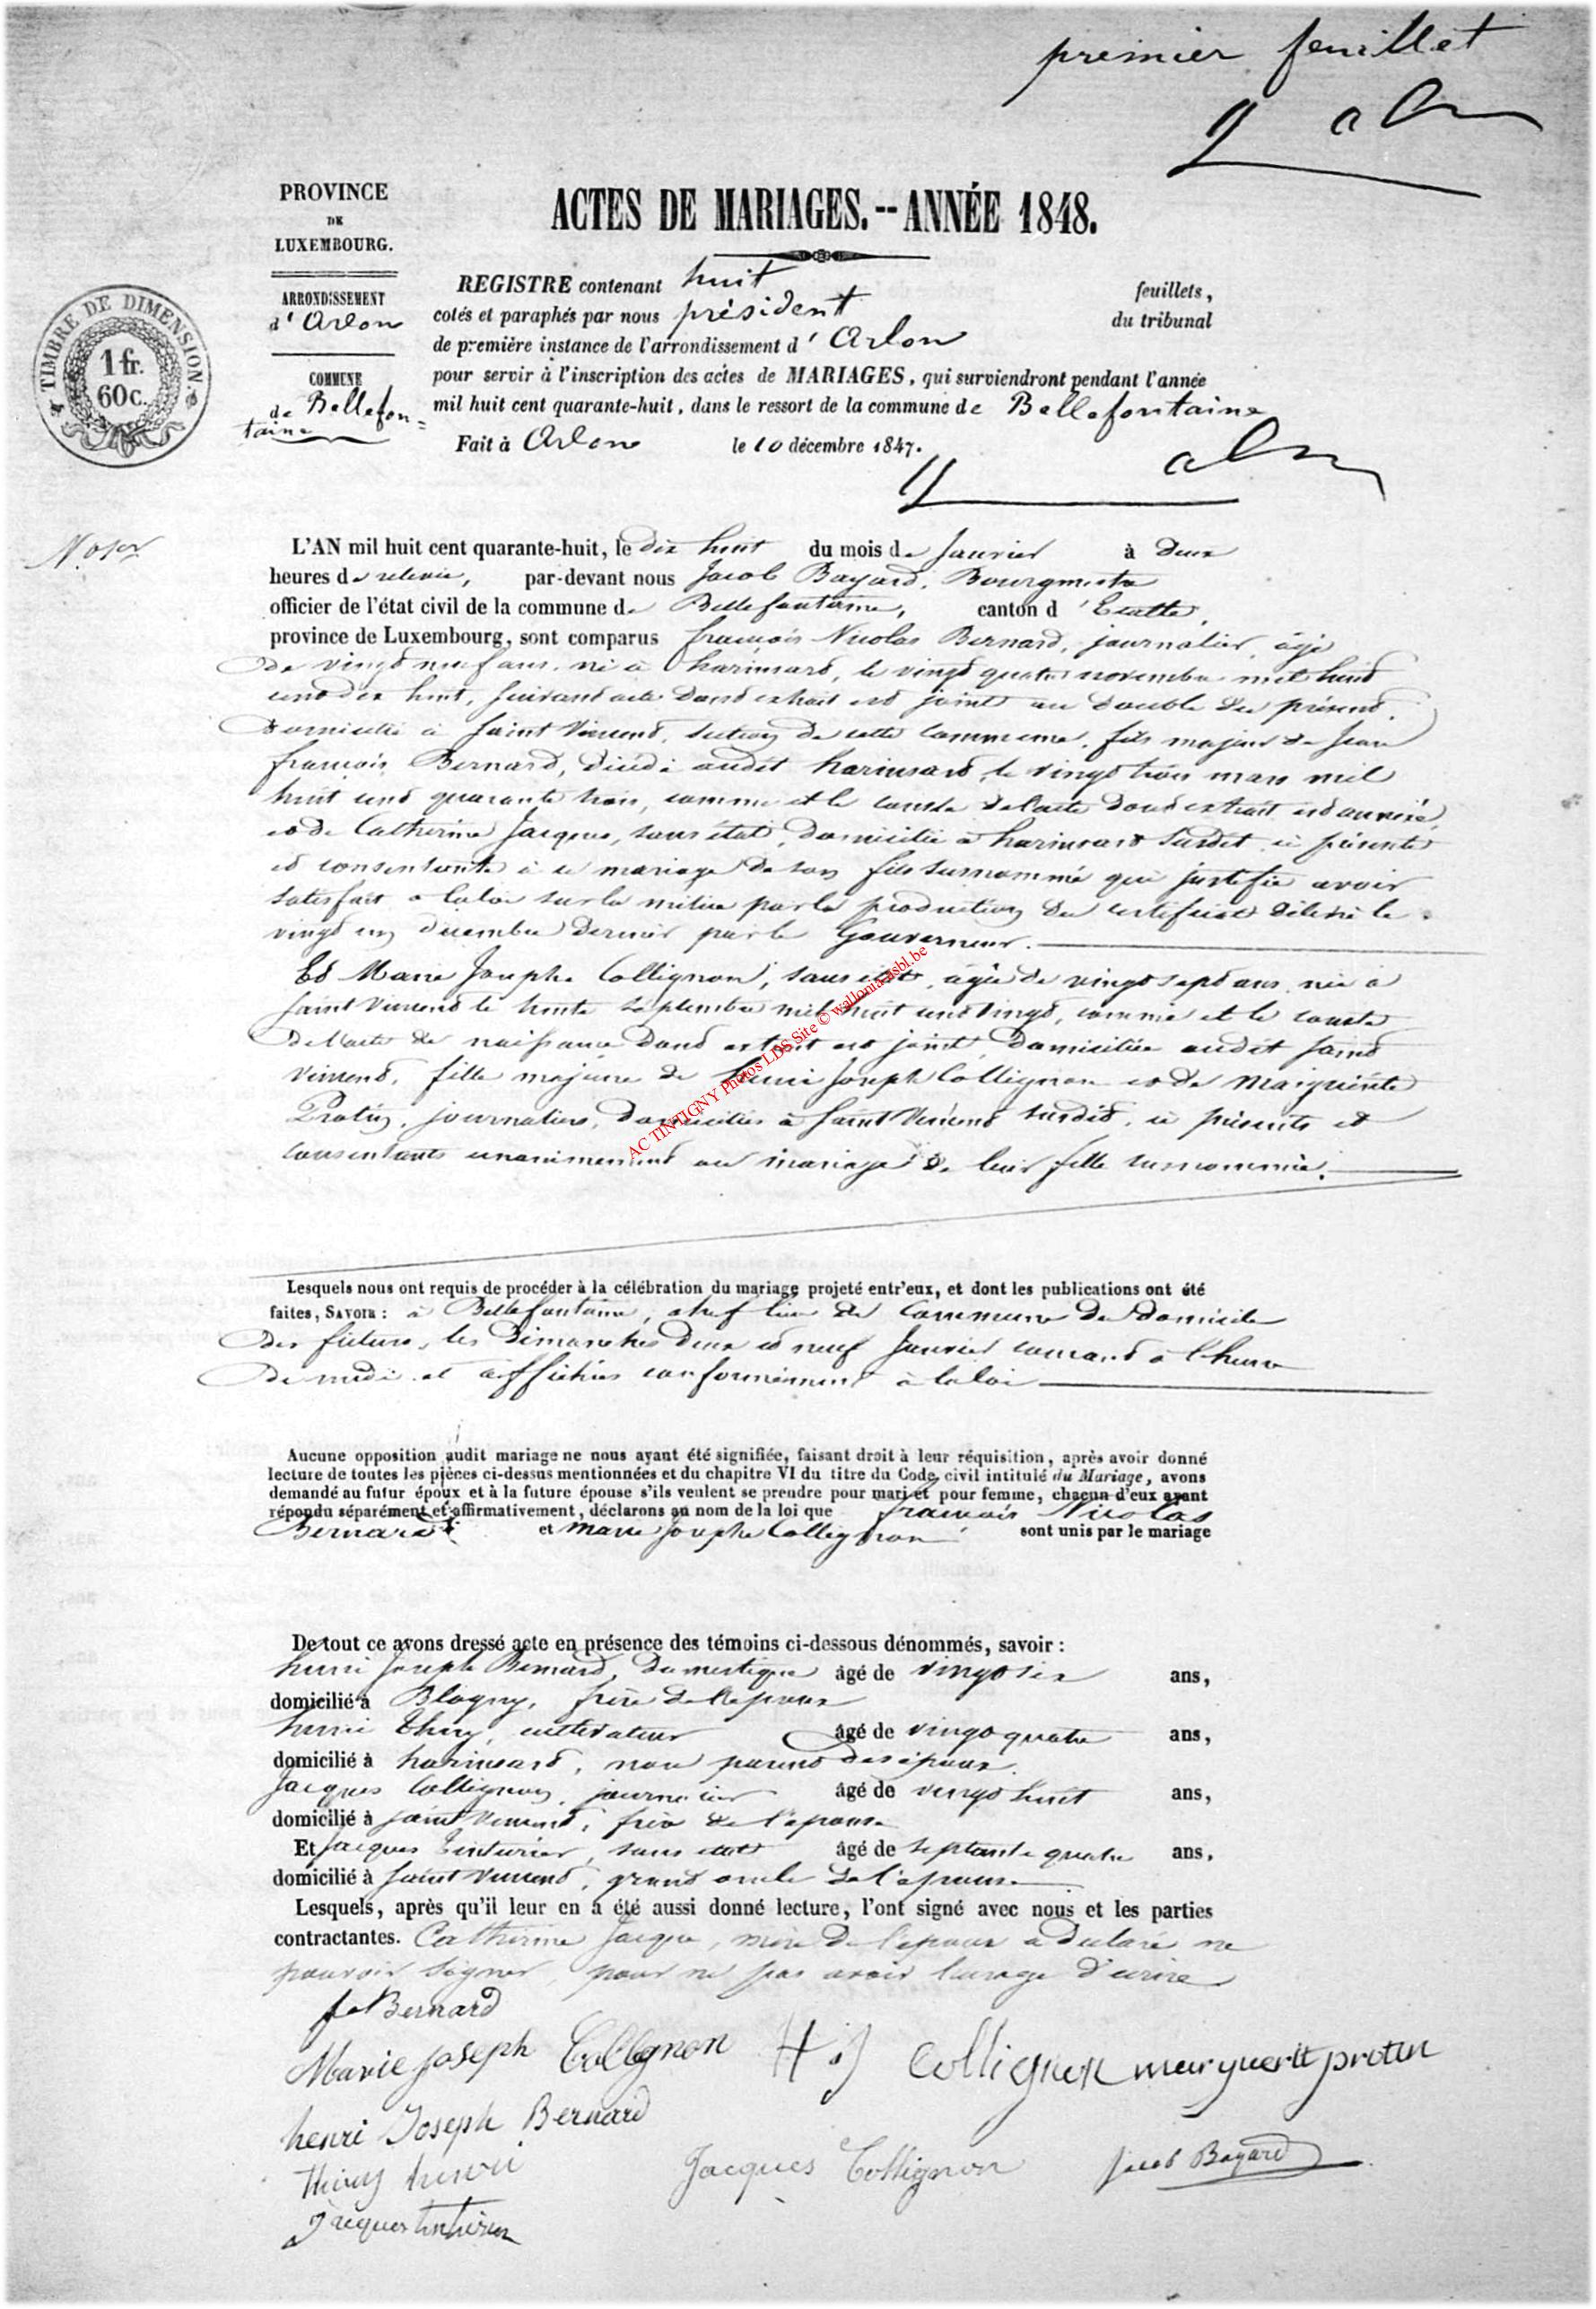 premier feuillet
PROVINCE
DE
LUXEMBOURG.
ARRONDISSEMENT
d'Arlon
COMMUNE
de Bellefon=
taine
TIMBRE DE DIMENSION.
1 fr.
60 c.
ACTES DE MARIAGES.--ANNÉE 1848.
REGISTRE contenant huit feuillets,
cotés et paraphés par nous président du tribunal
de première instance de l'arrondissement d'Arlon
pour servir à l'inscription des actes de MARIAGES, qui surviendront pendant l'année
mil huit cent quarante-huit, dans le ressort de la commune de Bellefontaine
Fait à Arlon le 10 décembre 1847.
L'AN mil huit cent quarante-huit, le dix huit du mois de Janvier à deux
heures de relevée, par-devant nous Jacob Bayard, Bourgmestre
officier de l'état civil de la commune de Bellefontaine, canton d'Etalle,
province de Luxembourg, sont comparus françois Nicolas Bernard, journalier, âgé
de vingt neuf ans, né à harinsard, le vingt quatre novembre mil huit
cent dix huit, suivant acte dont extrait est joint au double du présent,
domicilié à Saint Vincent, section de cette commune, fils majeur de Jean
françois Bernard, décédé audit harinsard, le vingt trois mars mil
huit cent quarante trois, comme et le conste de l'acte dont extrait est annexé,
et de Catherine Jacques, sans état, domiciliée à harinsard susdit, ici présente
et consentante à ce mariage de son fils surnommé qui justifie avoir
satisfait à la loi sur la milice par la production du certificat délivré le
vingt un décembre dernier par le Gouverneur.
Et Marie Josephe Collignon, sans état, âgée de vingt sept ans, née à
Saint Vincent le trente septembre mil huit cent vingt, comme et le conste
de l'acte de naissance dont extrait est joint, domiciliée audit Saint
Vincent, fille majeure de henri Joseph Collignon et de Marguerite
Protin, journaliers, domiciliés à Saint Vincent susdit, ici présents et
consentants unanimement au mariage de leur fille surnommée.
AC TINTIGNY Photos LDS Site © wallonia-asbl.be
Lesquels nous ont requis de procéder à la célébration du mariage projeté entr'eux, et dont les publications ont été
faites, SAVOIR : à Bellefontaine, chef lieu de Commune du domicile
des futurs, les Dimanches deux et neuf Janvier courant à l'heure
de midi et affichées conformément à la loi
Aucune opposition audit mariage ne nous ayant été signifiée, faisant droit à leur réquisition, après avoir donné
lecture de toutes les pièces ci-dessus mentionnées et du chapitre VI du titre du Code civil intitulé du Mariage, avons
demandé au futur époux et à la future épouse s'ils veulent se prendre pour mari et pour femme, chacun d'eux ayant
répondu séparément et affirmativement, déclarons au nom de la loi que françois Nicolas
Bernard et Marie Josephe Collignon sont unis par le mariage
De tout ce avons dressé acte en présence des témoins ci-dessous dénommés, savoir :
henri Joseph Bernard, domestique âgé de vingt six ans,
domicilié à Blagny, frère de l'époux
henri Thiry, cultivateur âgé de vingt quatre ans,
domicilié à harinsard, non parent des époux.
Jacques Collignon, journalier âgé de vingt huit ans,
domicilié à Saint Vincent, frère de l'épouse
Et Jacques Tinturier, sans état âgé de septante quatre ans,
domicilié à Saint Vincent, grand oncle de l'épouse
Lesquels, après qu'il leur en a été aussi donné lecture, l'ont signé avec nous et les parties
contractantes. Catherine Jacque, mère de l'époux a déclaré ne
pouvoir signer, pour ne pas avoir l'usage d'écrire
Bernard
Marie Joseph Collignon H. J Collignon marguerit protin
henri Joseph Bernard
Thiry henri Jacques Collignon Jacob Bayard
Jacques tinturier